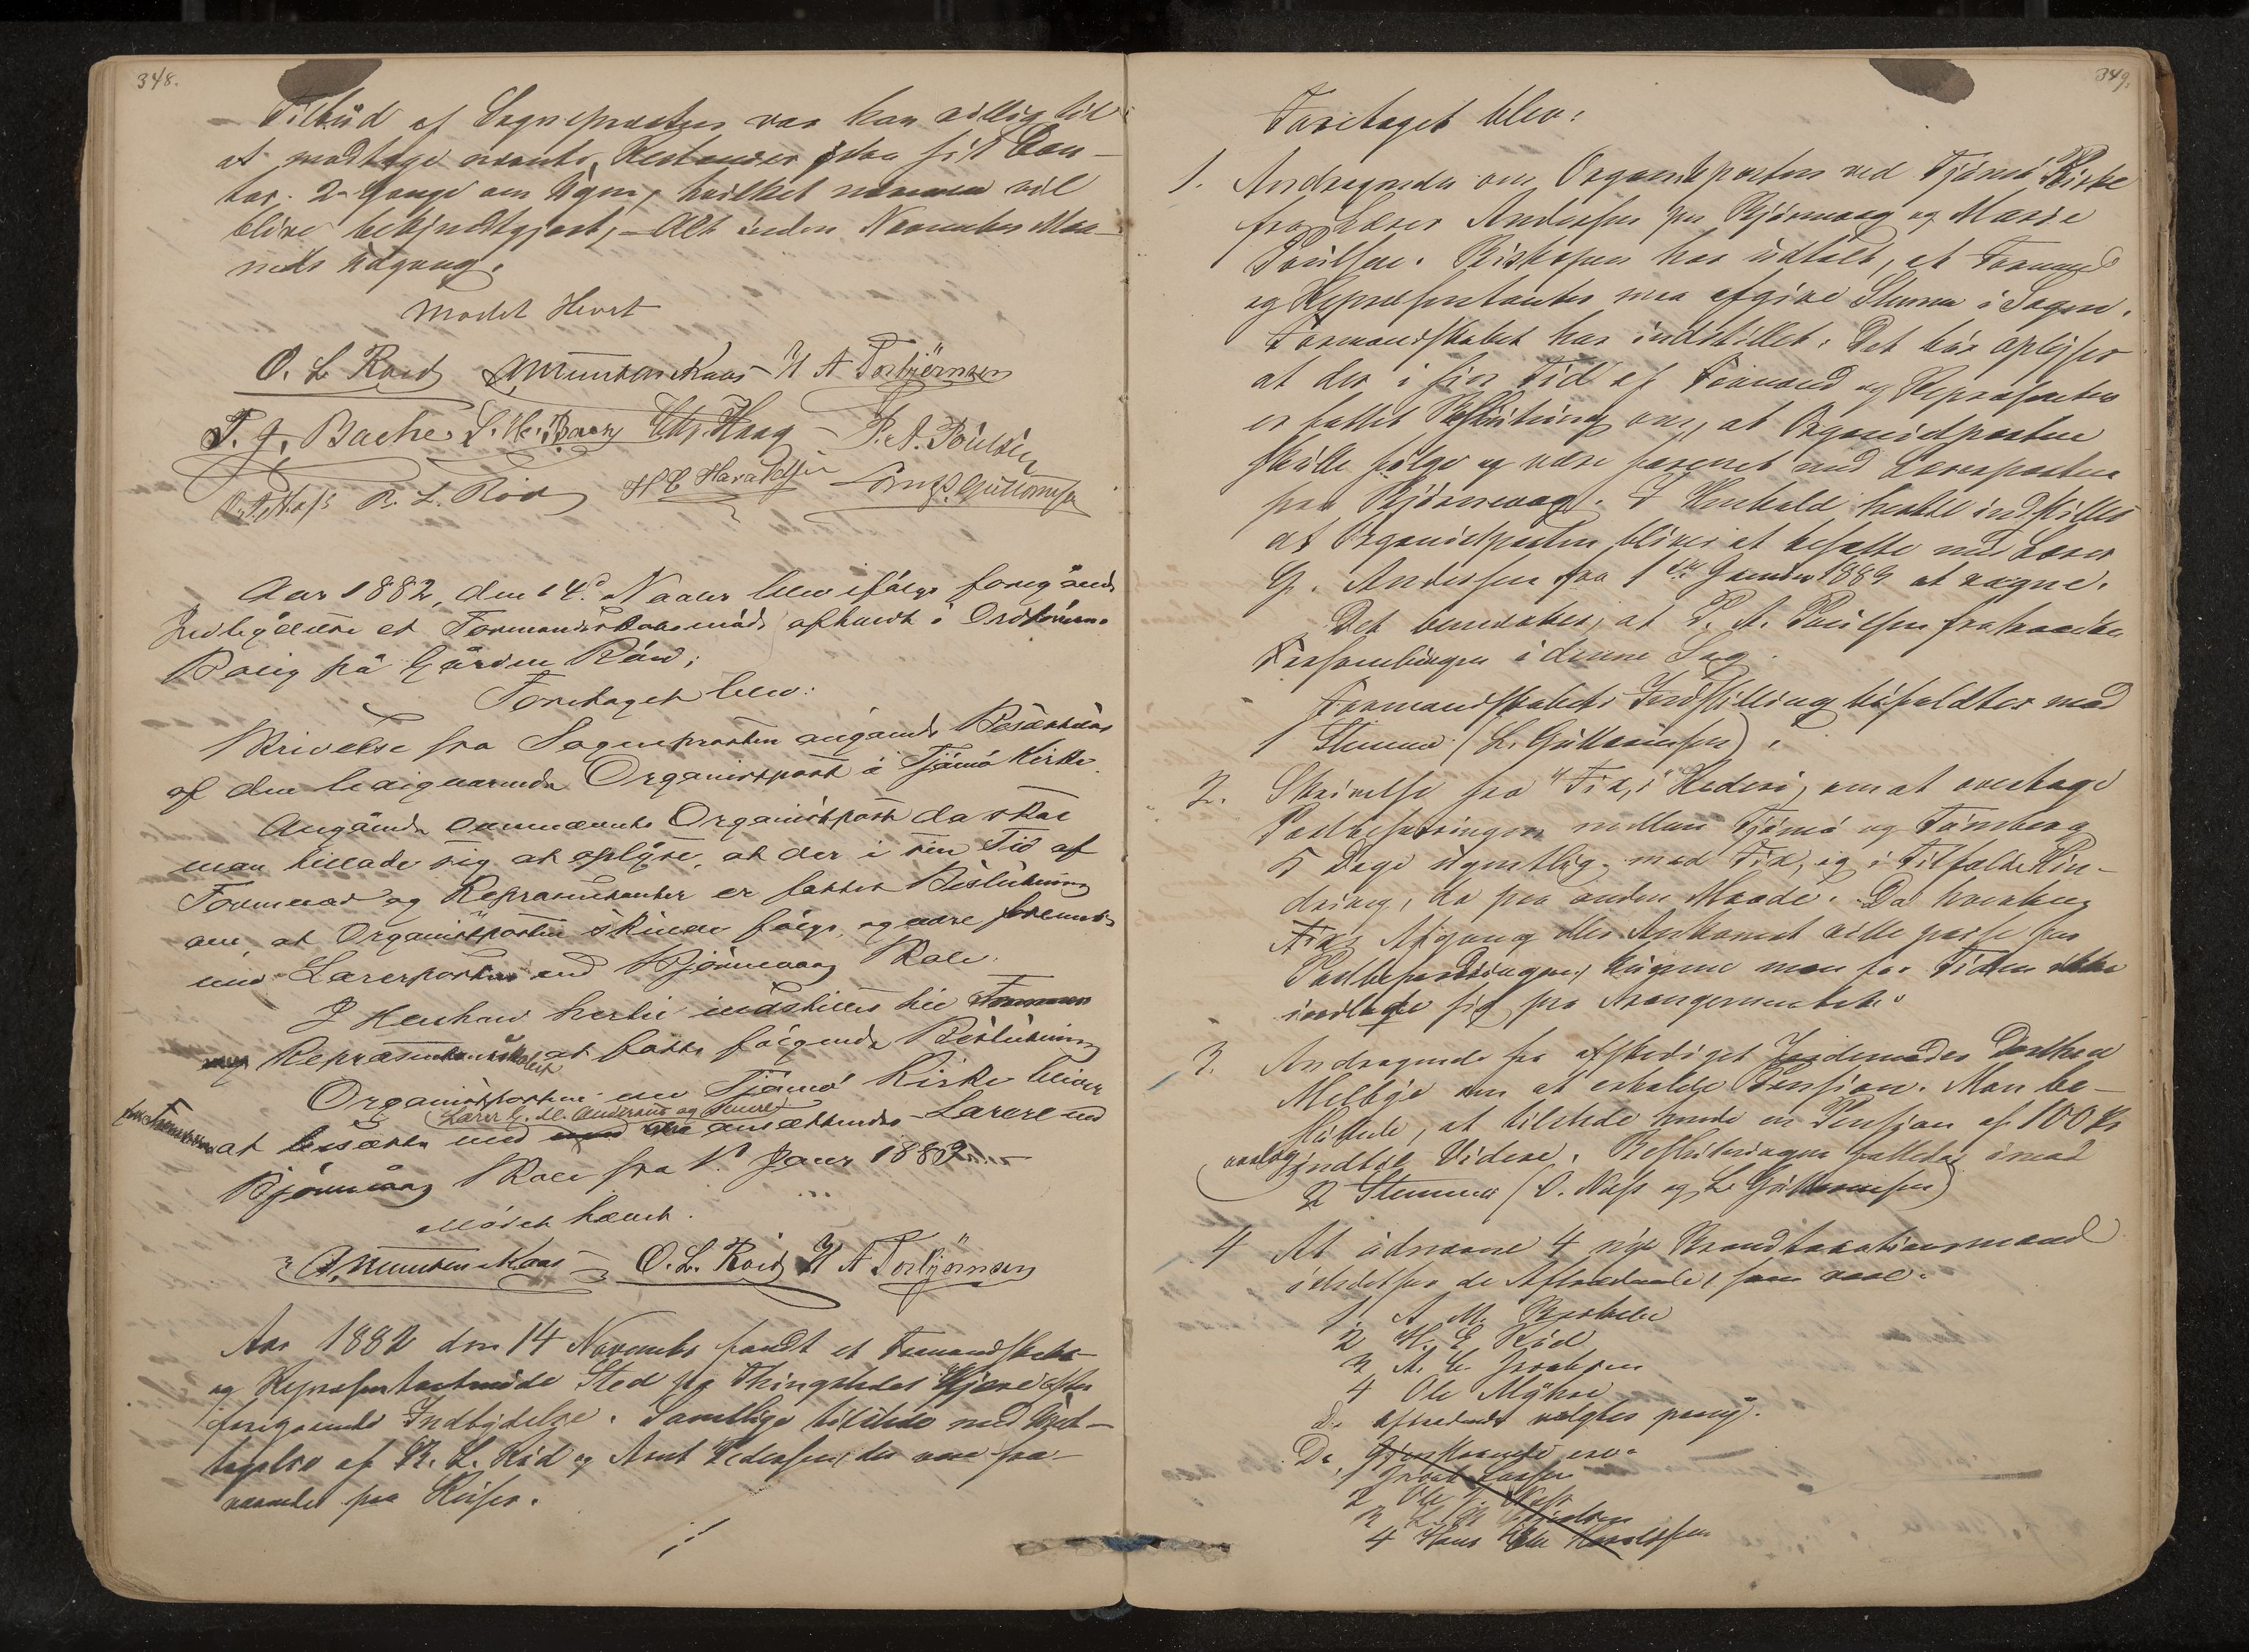 348.
Tilbud af Sognepræsten var han villig til
at modtage nævnte Restancer paa sit Con-
tor 2 Gange om Ugen, hvilket nærmere vil
blive bekjendtgjort, – Alt inden November Maa-
neds Udgang.
Mødet Hevet
O. L. Røed A Knutsen Kaas H A Torbjørnsen
T. J. Bache Chr. Haag P. A. Poulsen
R. L. Röd H E Haraldsen
Aar 1882, den 14d Novbr blev ifølge foregående
Indbydelse et Formandskabsmøde afholdt i Ordførerens
Bolig på Gården Röd;
Foretaget blev:
Skrivelse fra Sognepræsten angående Besættelse
af den ledigværende Organistpost i Tjømø Kirke.
Angående ovennævnte Organistpost da skal
man tillade sig at oplyse, at der i sin Tid af
Formænd og Repræsentanter er fattet Beslutning
om, at Organistposten skulde følge, og være forenet
med Lærerposten ved Bjørnevaag Skole.
I Henhold hertil indstilles til
Repræsentantskabet at fatte følgende Beslutning
Organistposten ved Tjømø Kirke bliver
Lærer G. M. Andersens og
at besætte med ansættende Lærere ved
Bjørnevaag Skole fra 1. Januar 1883
Mødet hævet.
A. Knutsen Kaas O. L. Røed H A Torbjørnsen
Aar 1882 den 14 November fandt et Formandskabs-
og Repræsentantmøde Sted paa Thingstedet Kjære efter
foregaaende Indbydelse. Samtlige tilstede med Und-
tagelse af R. L. Röd og Arnt Pedersen, der vare fra-
værende paa Reiser.
349.
Foretaget blev:
1. Andragender om Organistposten ved Tjømø Kirke
fra Lærer Andersen paa Bjørnevaag og Marie
Poulsen. Biskopen har udtalt, at Formænd
og Repræsentanter maa afgive Stemme i Sagen.
Formandskabet har indstillet: Det bør oplyses
at der i sin Tid af Formænd og Repræsentanter
er fattet Beslutning om, at Organistposten
skulle følge og være forenet med Lærerposten
paa Bjørnevaag. I Henhold hertil indstilles
at Organistposten bliver at besætte med Lærer
G. Andersen fra 1ste Januar 1883 at regne.
Det bemærkes, at P. A. Poulsen fratraadte
Forsamlingen i denne Sag.
Formandskabets Indstilling bifaldtes mod
1 Stemme (L. Guttormsen).
2. Skrivelse fra "Fix," Hederi, om at overtage
Postbefordringen mellem Tjømø og Tønsberg
5 Dage ugentlig med Fix, og i Tilfælde Hin-
dring, da paa anden Maade. Da hverken
Fix's Afgang eller Ankomst ville passe for
Postbefordringen, kunne man for Tiden ikke
indlade sig paa Arrangementet.
3. Andragende fra afskediget Jordemoder Dorthea
Melbye om at erholde Pension. Man be-
sluttede, at tilstede hende en Pension af 100 Kr
aarlig indtil Videre. Beslutningen fattedes imod
2 Stemmer (O. Næss og L. Guttormsen)
4 At udnævne 4 nye Brandtaxationsmænd
istedetfor de Aftrædende, som vare.
1. A. M.
2 H. E Röd
3 A. C. Jacobsen
4 Ole Myhre
De aftrædende valgtes paany.
De Gjenstaaende ere.
1
2 Ole Næss
3
4 Hans Haraldsen